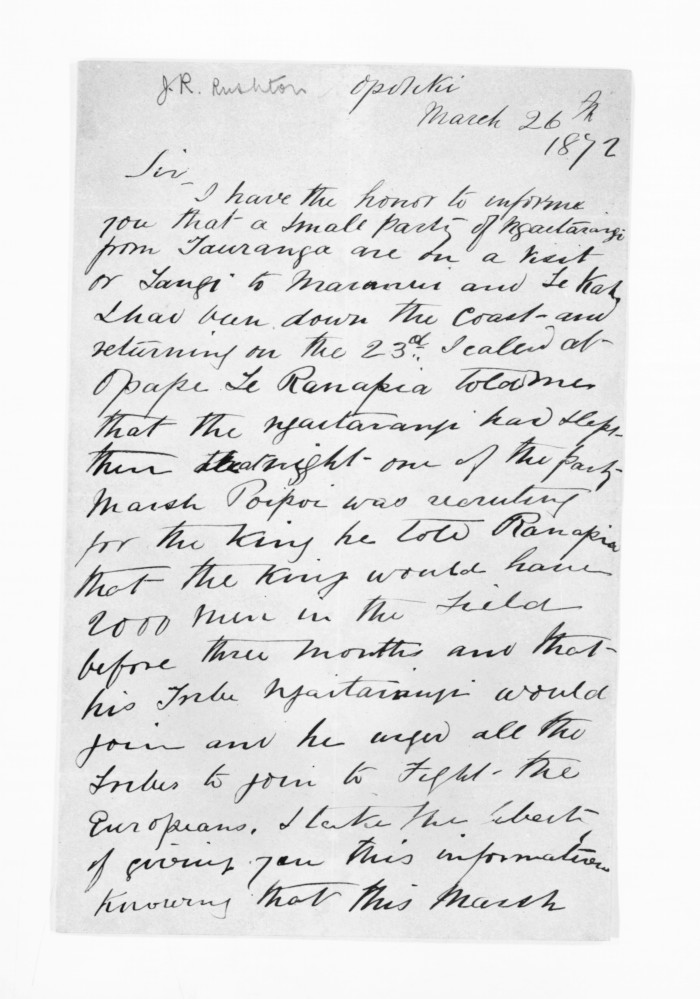 J.R. Rushton Opotiki
March 26th
1872
Sir
I have the honor to inform
you that a small Party of Ngaitarangi
from Tauranga are on a visit
or Tangi to Maraenui and Te Kaha
I had been down the coast and
returning on the 23rd. I called at
Opape Te Ranapia told me
that the Ngaitarangi had slept
there that night - one of the party
Marsh Poipoi was recruiting
for the King he told Ranapia
that the King would have
2000 men in the Field
before three months and that
his Tribe Ngaitairangi would
join and he urged all the
Tribes to join to Fight - the
Europeans. I take the liberty
of giving you this information
Knowing that this Marsh